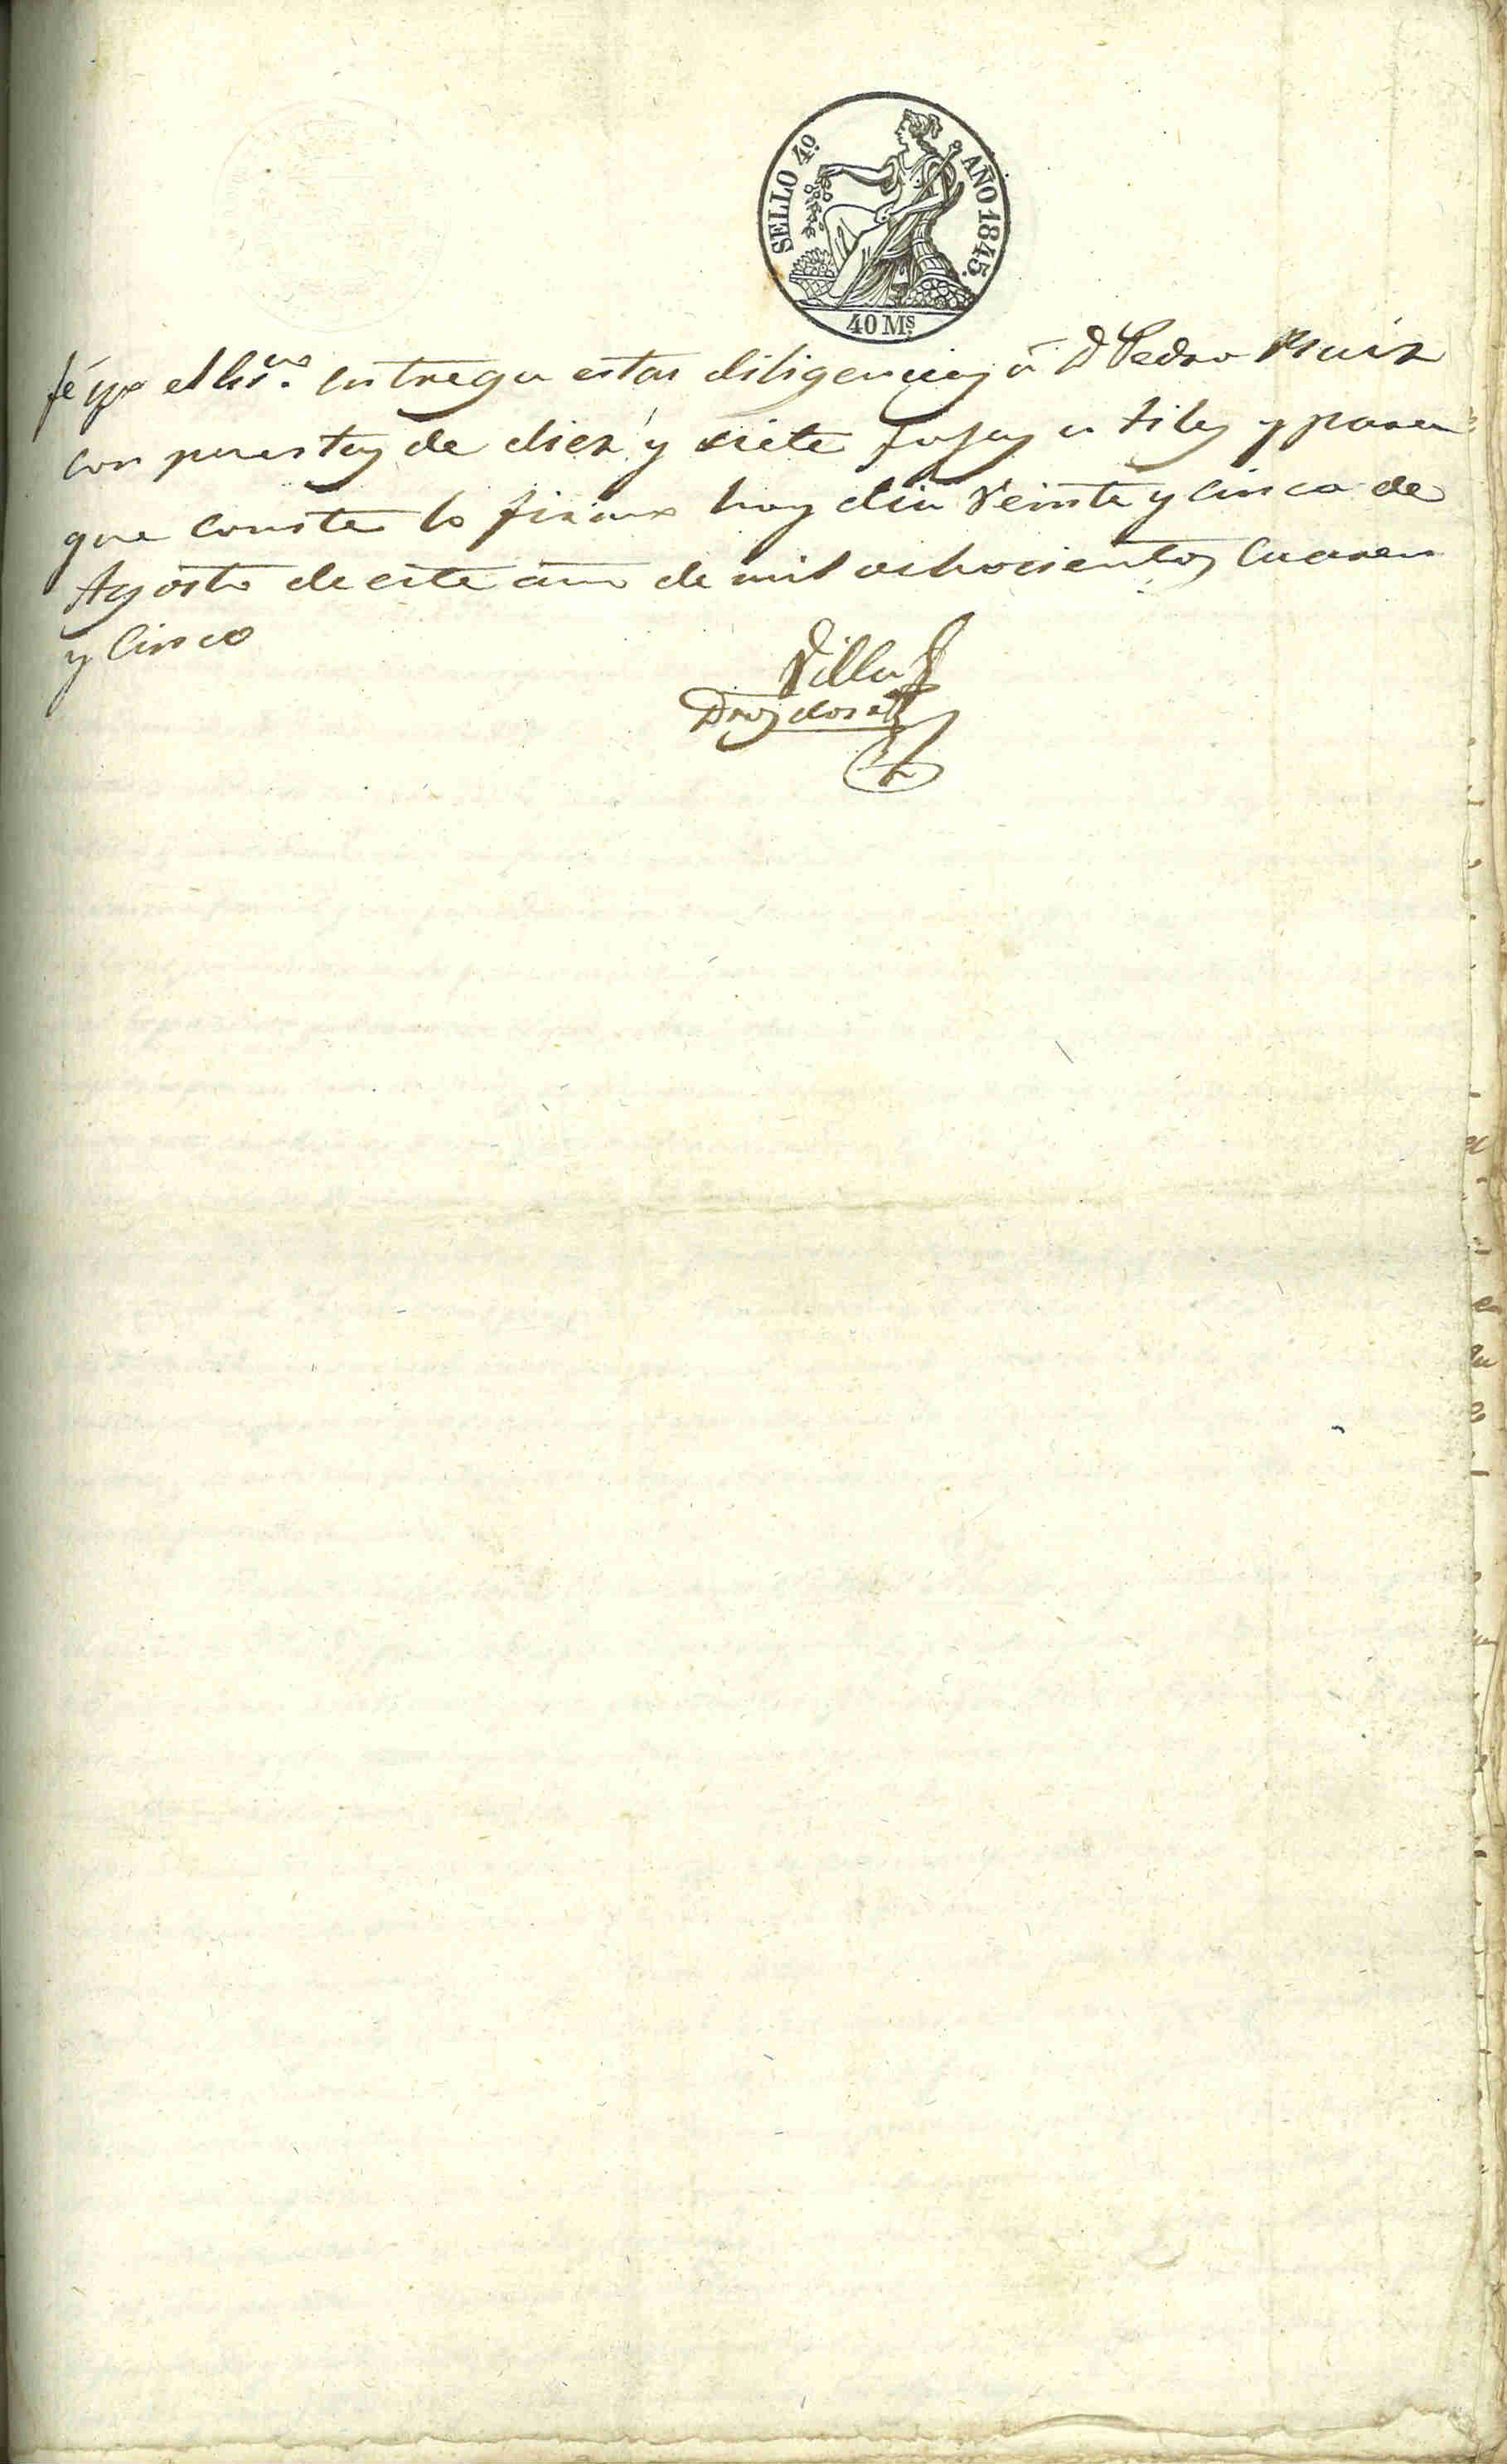 SELLO 4º AÑO 1845.
40 Ms
fé yo el Esno. entregu estas diligencias á D Pedro Ruiz
con puestas de diez y siete fojas utiles y para
que conste lo firmo hoy dia Veinte y cinco de
Agosto de este año de mil ochocientos Cuaren
y Cinco
Villa
Dros dos rs